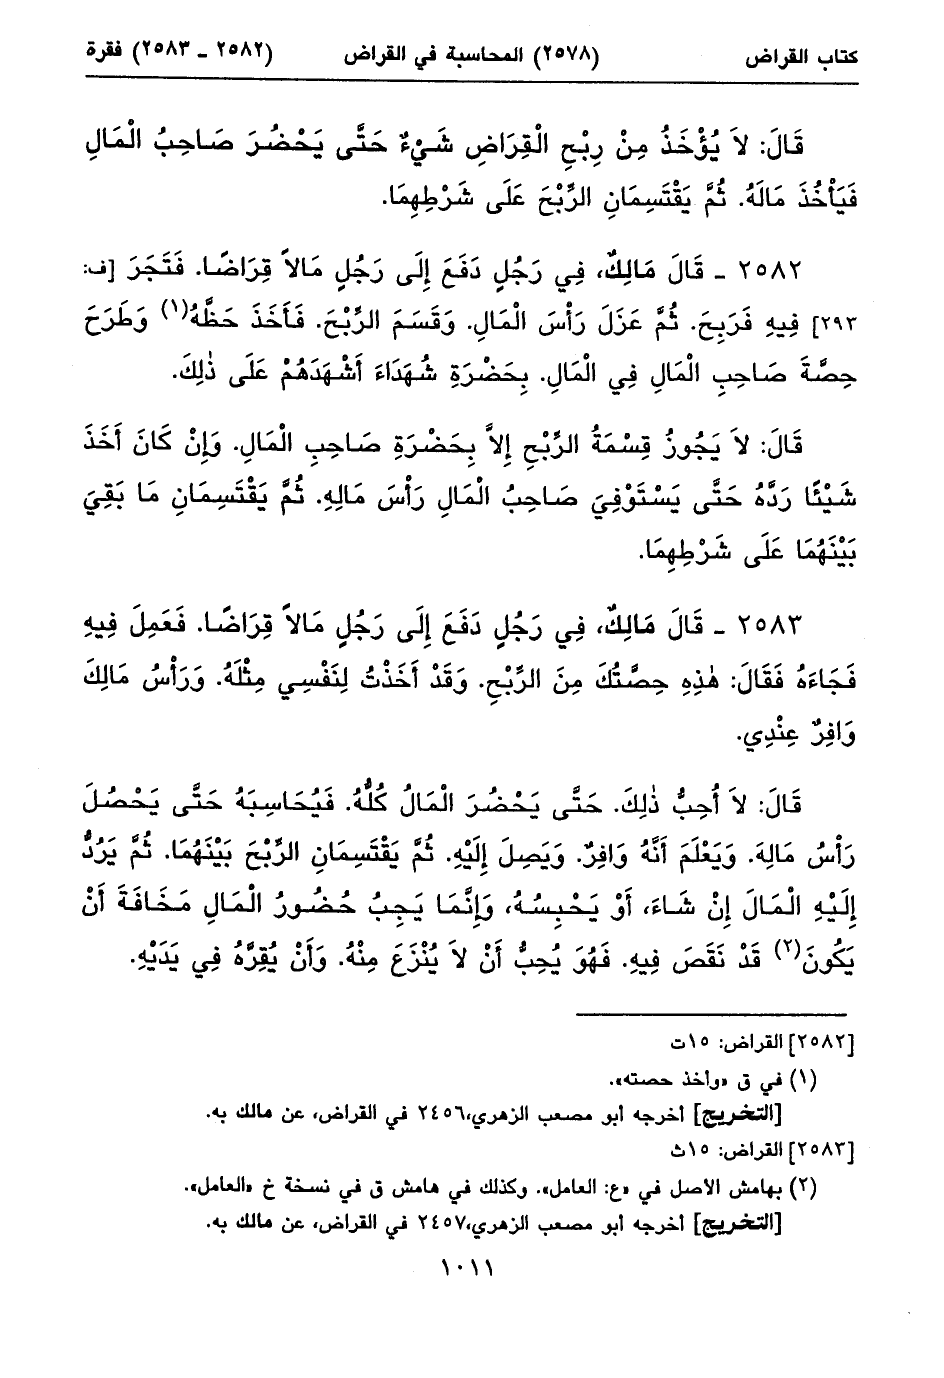 كتاب القراض (٢٥٧٨) المحاسبة في القراض (٢٥٨٢ - ٢٥٨٣) فقرة
قَالَ: لاَ يُؤْخَذُ مِنْ رِبْحِ الْقِرَاضِ شَيْءٌ حَتَّى يَحْضُرَ صَاحِبُ الْمَالِ
فَيَأْخُذَ مَالَهُ. ثُمَّ يَقْتَسِمَانِ الرِّبْحَ عَلَى شَرْطِهِمَا.
٢٥٨٢ - قَالَ مَالِكٌ، فِي رَجُلٍ دَفَعَ إِلَى رَجُلٍ مَالاً قِرَاضًا. فَتَجَرَ [ف:
٢٩٣] فِيهِ فَرَبِحَ. ثُمَّ عَزَلَ رَأْسَ الْمَالِ. وَقَسَمَ الرِّبْحَ. فَأَخَذَ حَظَّهُ(١) وَطَرَحَ
حِصَّةَ صَاحِبِ الْمَالِ فِي الْمَالِ. بِحَضْرَةِ شُهَدَاءَ أَشْهَدَهُمْ عَلَى ذٰلِكَ.
قَالَ: لاَ يَجُوزُ قِسْمَةُ الرِّبْحِ إِلاَّ بِحَضْرَةِ صَاحِبِ الْمَالِ. وَإِنْ كَانَ أَخَذَ
شَيْئًا رَدَّهُ حَتَّى يَسْتَوْفِيَ صَاحِبُ الْمَالِ رَأْسَ مَالِهِ. ثُمَّ يَقْتَسِمَانِ مَا بَقِيَ
بَيْنَهُمَا عَلَى شَرْطِهِمَا.
٢٥٨٣ - قَالَ مَالِكٌ، فِي رَجُلٍ دَفَعَ إِلَى رَجُلٍ مَالاً قِرَاضًا. فَعَمِلَ فِيهِ
فَجَاءَهُ فَقَالَ: هٰذِهِ حِصَّتُكَ مِنَ الرِّبْحِ. وَقَدْ أَخَذْتُ لِنَفْسِي مِثْلَهُ. وَرَأْسُ مَالِكَ
وَافِرٌ عِنْدِي.
قَالَ: لاَ أُحِبُّ ذٰلِكَ. حَتَّى يَحْضُرَ الْمَالُ كُلُّهُ. فَيُحَاسِبَهُ حَتَّى يَحْصُلَ
رَأْسُ مَالِهِ. وَيَعْلَمَ أَنَّهُ وَافِرٌ. وَيَصِلَ إِلَيْهِ. ثُمَّ يَقْتَسِمَانِ الرِّبْحَ بَيْنَهُمَا. ثُمَّ يَرُدُّ
إِلَيْهِ الْمَالَ إِنْ شَاءَ، أَوْ يَحْبِسُهُ، وَإِنَّمَا يَجِبُ حُضُورُ الْمَالِ مَخَافَةَ أَنْ
يَكُونَ(٢) قَدْ نَقَصَ فِيهِ. فَهُوَ يُحِبُّ أَنْ لاَ يُنْزَعَ مِنْهُ. وَأَنْ يُقِرَّهُ فِي يَدَيْهِ.
[٢٥٨٢] القراض: ١٥ت
(١) في ق «وأخذ حصته».
[التخريج] أخرجه أبو مصعب الزهري،٢٤٥٦ في القراض، عن مالك به.
[٢٥٨٣] القراض: ١٥ث
(٢) بهامش الأصل في «ع: العامل». وكذلك في هامش ق في نسخة خ «العامل».
[التخريج] أخرجه أبو مصعب الزهري،٢٤٥٧ في القراض، عن مالك به.
١٠١١